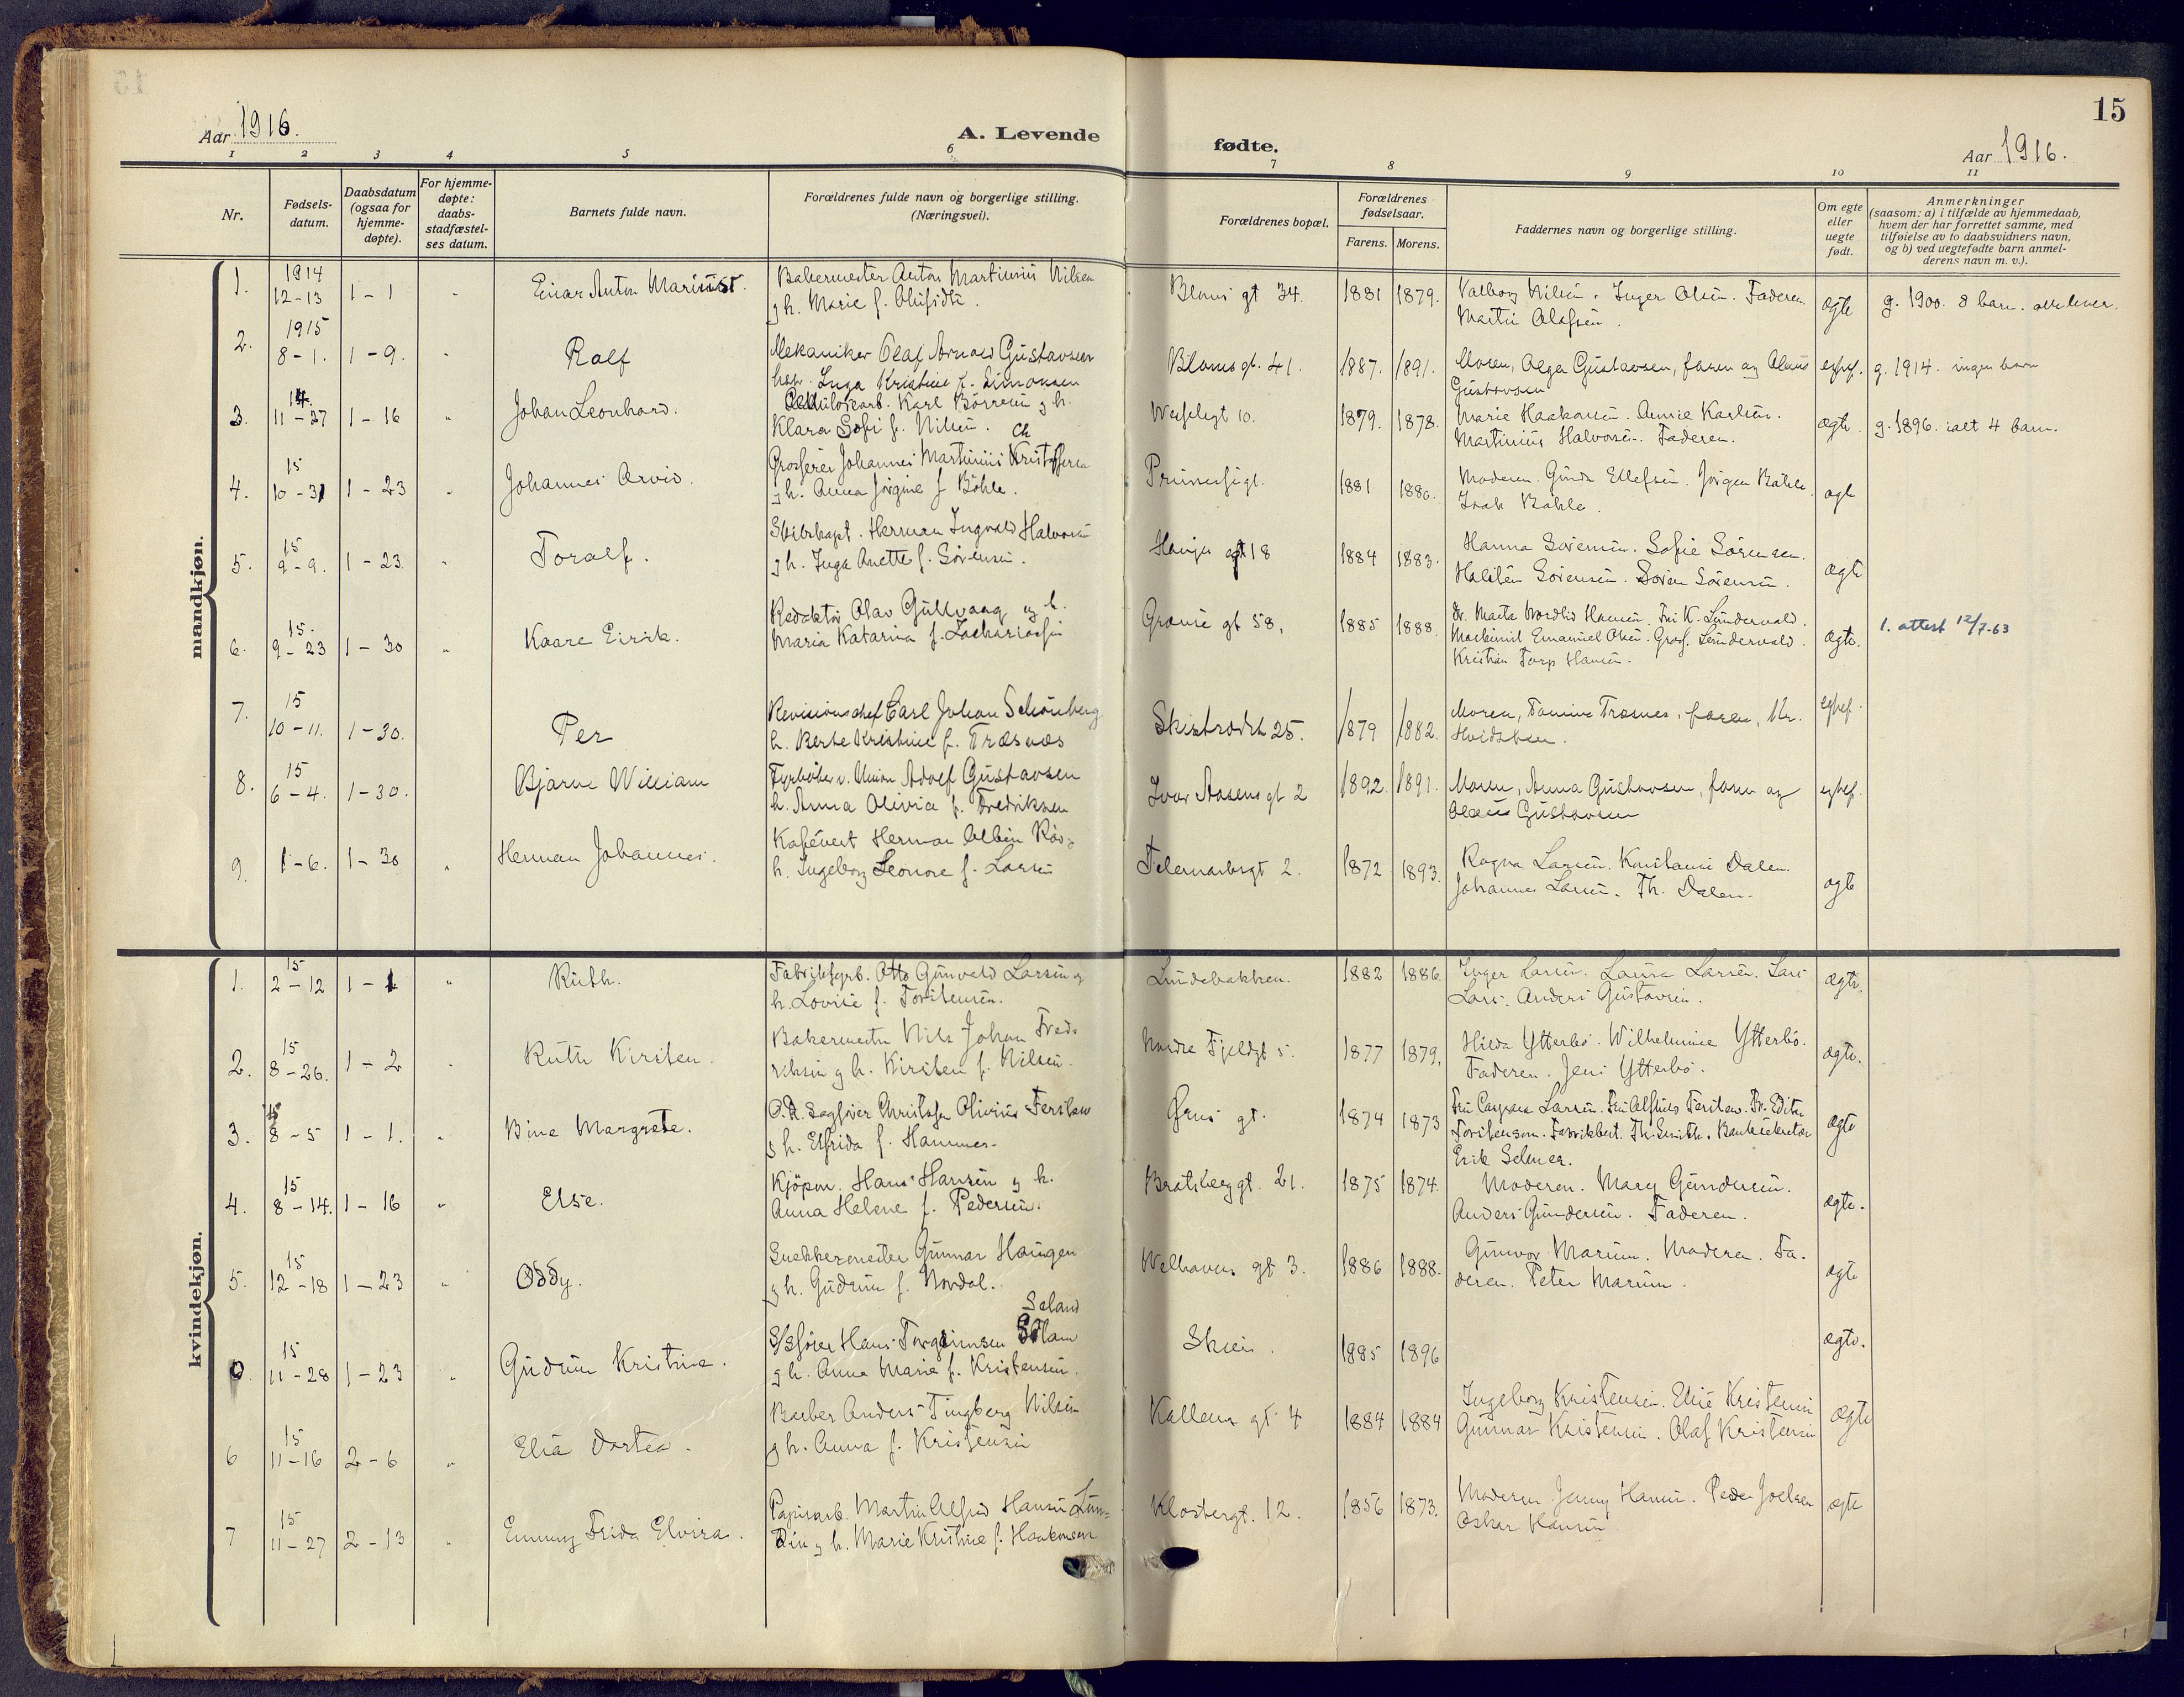 15
Aar 1916.
A. Levende
fødte.
Aar 1916.
1 2 3 4 5 6 7 8 9 10 11
Nr.
Fødsels-
datum.
Daabsdatum
(ogsaa for
hjemme-
døpte).
For hjemme-
døpte:
daabs-
stadfæstel-
ses datum.
Barnets fulde navn.
Forældrenes fulde navn og borgerlige stilling.
(Næringsvei).
Forældrenes bopæl.
Forældrenes
fødselsaar.
Farens. Morens.
Faddernes navn og borgerlige stilling.
Om egte
eller
uegte
født.
Anmerkninger
(saasom: a) i tilfælde av hjemmedaab,
hvem der har forrettet samme, med
tilføielse av to daabsvidners navn,
og b) ved uegtefødte barn anmel-
derens navn m. v.).
mandkjøn.
1. 1914 12-13 1-1 " Einar Anton Marinius
Bakermester Anton Martinius Nilsen
g h. Marie f. Olufsdtr.
Bloms gt 34. 1881 1879.
Valborg Nilsen. Inger Olsen. Faderen.
Martin Olafsen.
ægte g. 1900. 8 barn. alle lever.
2. 1915 8-1. 1-9. " Ralf
Mekaniker Olaf Arnold Gustavsen
h. Inga Kristine f. Simonsen
Blomsgt. 41. 1887. 1891.
Moren, Olga Gustavsen, faren og
Gustavsen
g. 1914. ingen barn
3. 14. 11-27 1-16 " Johan Leonhard.
Cellulosearb. Karl Børresen g h.
Klara Sofi f. Nilsen.
10. 1879. 1878.
Marie Haakonsen. Annie Karlsen.
Martinius Halvorsen. Faderen.
ægte. g. 1896. ialt 4 barn.
4. 15 10-31 1-23 " Johannes Arvid.
Ch
Grosserer Johannes Martinius Kristofersen
g h. Anna Jørgine f. Bøhle.
Prinsensgt. 1881 1880.
Moderen. Gunda Ellefsen. Jørgen Bøhle.
Isak Bøhle.
ægte
5. 15 9-9. 1-23. " Toralf.
Skibskapt. Herman Ingvald Halvorsen
g h. Inga Anette f. Sørensen.
Hauges gt 18 1884 1883.
Hanna Sørensen. Sofie Sørensen.
Halsten Sørensen. Søren Sørensen.
ægte
6. 15. 9-23 1-30 " Kaare Eirik.
Redaktør Olav Gullvaag g h.
Maria Katarina f. Zachariassen
Graane gt 58. 1885 1888.
Fr. Marta Nordlid Hansen. Fru K. Lundervald.
Maskinist Emanuel Olsen. Gross. Lundervald.
Kristian Torp Hansen.
ægte. 1. attest 12/7-63
7. 15 10-11. 1-30. Per
Revisionschef Carl Johan Schönberg
h. Berte Kristine f. Træsnæs
Skistredet 25. 1879 1882.
Moren, Tomine Træsnes, faren, Kr.
8. 15 6-4. 1-30. Bjarne William
Fyrbøter v. Union Adolf Gustavsen
h. Anna Olivia f. Fredriksen
Ivar Aasens gt 2 1892. 1891.
Moren, Anna Gustavsen, faren og
Gustavsen
9. 1-6. 1-30 " Herman Johannes.
Kafévert Herman Albin
h. Ingeborg Leonore f. Larsen
Telemarksgt 2. 1872 1893.
Ragna Larsen. Konstanse Dalen.
Johannes Larsen. Th. Dalen.
ægte
kvindekjøn.
1. 15 2-12 1-1 " Ruth.
Fabrikfyrb. Otto Gunvald Larsen g
h. Lovise f. Torstensen.
Lundebakken. 1882 1886.
Inger Larsen. Laura Larsen. Lars
Lars. Anders Gustavsen.
ægte.
2. 15 8-26. 1-2 " Ruth Kirsten.
Bakermester Nils Johan Fred-
riksen g h. Kirsten f. Nilsen.
Nordre Fjeldgt 5. 1877 1879.
Hilda Ytterbø. Wilhelmine Ytterbø.
Faderen. Jens Ytterbø.
ægte.
3. 15 8-5 1-1. " Bine Margrete.
O.R. Sagfører Christofer Olivius Ferslew
g h. Elfrida f. Hammer.
gt. 1874 1873
Larsen. Ferslew. Fr. Edith
Torstenson. Fabrikbest. Th. Smith. Banksekretær
Erik Selmer.
ægte
4. 15 8-14. 1-16 " Else.
Kjøpm. Hans Hansen g h.
Anna Helene f. Pedersen.
Bratsberggt. 21. 1875 1874.
Moderen. Mary Gundersen.
Anders Gundersen. Faderen.
ægte.
5. 15 12-18 1-23 " Oddy.
Snekkermester Gunnar Haugen
g h. Gudrun f. Nordal.
Welhavens gt 3. 1886 1888.
Gunvor Marum. Moderen. Fa-
deren. Peter Marum.
ægte
0. 15 11-28 1-23 " Gudrun Kristine.
Seland
Hans Torgrimsen
g h. Anna Marie f. Kristensen.
Skien. 1885 1896
ægte.
6 15 11-16 2-6 " Elsa Dortea.
Barber Anders Tingberg Nilsen
g h. Anna f. Kristensen
Kallens gt. 4 1884 1884
Ingeborg Kristensen. Elise Kristensen
Gunnar Kristensen. Olaf Kristensen
ægte
7 15 11-27 2-13 " Emmy Frida Elvira.
Papirarb. Martin Alfred Hansen Lun-
din g h. Marie Kristine f. Haakonsen
Klostergt. 12. 1856 1873.
Moderen. Jenny Hansen. Peder Joelsen
Oskar Hansen
ægte